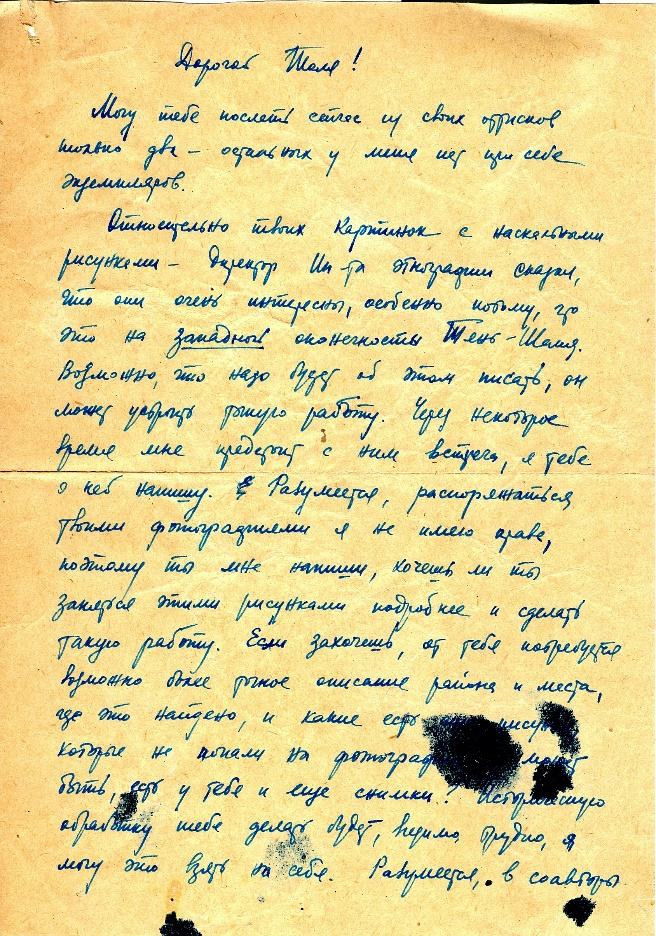 Дорогая Толя!
Могу тебе послать сейчас из своих оттисков
только два — остальных у меня нет при себе
экземпляров.
Относительно твоих картинок с наскальными
рисунками — директор Ин-та этнографии сказал,
что они очень интересны, особенно потому, что
это на западной оконечности Тянь-Шаня.
Возможно, что надо будет об этом писать, он
может устроить такую работу. Через некоторое
время мне предстоит с ним встреча, я тебе
о ней напишу. Разумеется, распоряжаться
твоими фотографиями я не имею права,
поэтому ты мне напиши, хочешь ли ты
заняться этими рисунками подробнее и сделать
такую работу. Если захочешь, от тебя потребуется
возможно более точное описание района и места,
где это найдено, и какие есть
которые не попали на может
быть, есть у тебя и еще снимки? Историческую
обработку тебе делать будет, видимо, трудно, я
могу это взять на себя. Разумеется, в соавторы